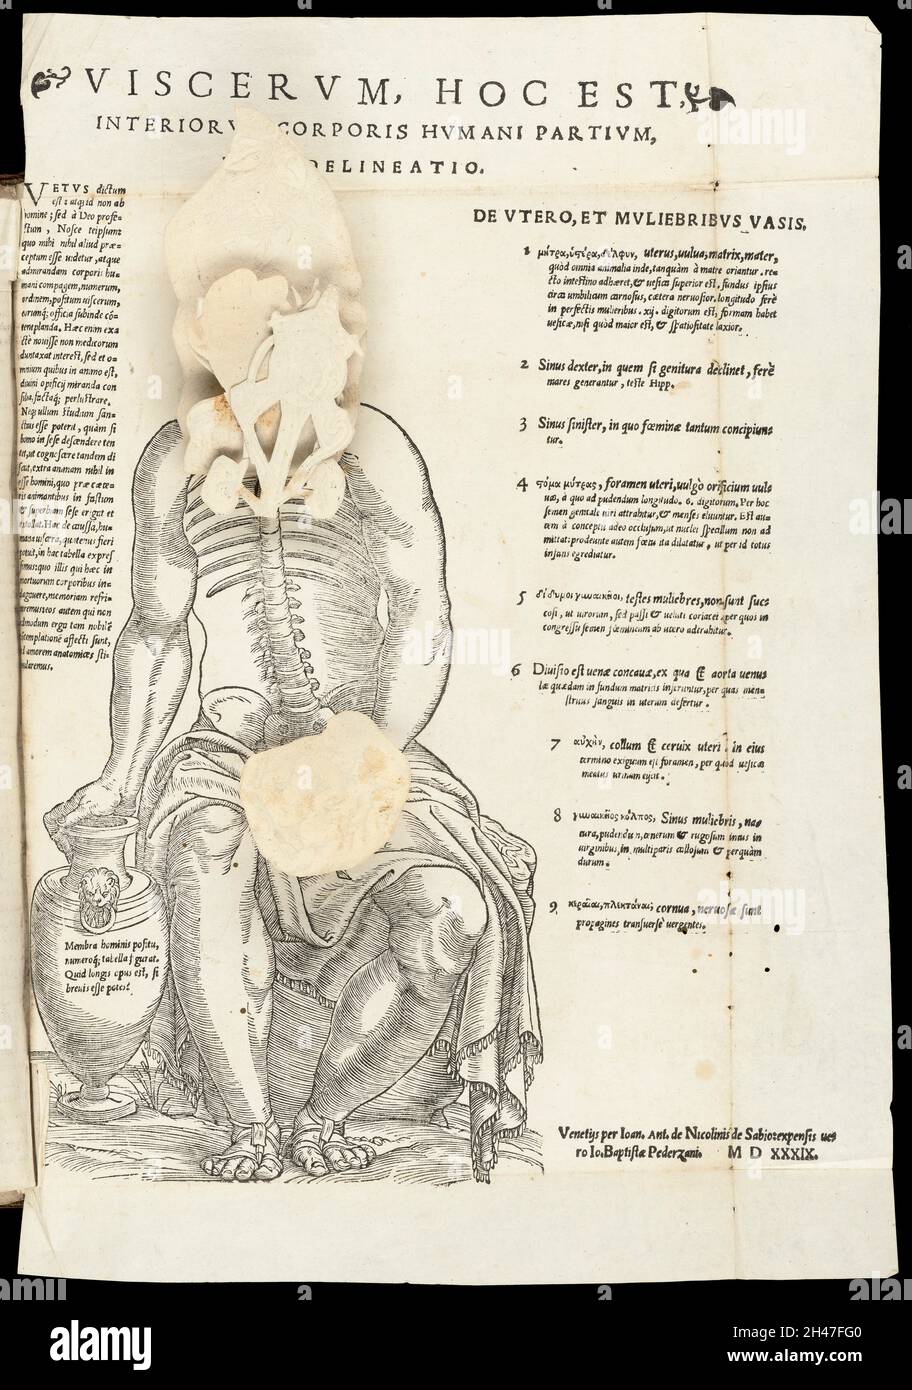 VISCERVM, HOC EST,
INTERIORV CORPORIS HVMANI PARTIVM,
DELINEATIO.
VETVS dictum
est: atq; id non ab
homine; sed à Deo profe-
ctum, Nosce teipsum:
quo mihi nihil aliud præ-
ceptum esse videtur, atque
admirandam corporis hu-
mani compagem, numerum,
ordinem, positum uiscerum,
eorumq; officia subinde cō-
templanda. Hæc enim exa
ctè nouisse non medicorum
duntaxat interest, sed et o-
mnium quibus in animo est,
diuini opificij miranda con
silia, factaq; perlustrare.
Neq; ullum studium san-
ctius esse poterit, quàm si
homo in sese descendere ten
tet, ut cognoscere tandem di
scat, extra animam nihil in
esse homini, quo præ cæte-
ris animantibus in fastum
& superbiam sese erigat et
attollat. Hac de caussa, hu-
mana uiscera, quatenus fieri
potuit, in hac tabella expres
simus: quo illis qui hæc in
mortuorum corporibus in-
dagauere, memoriam refri-
caremus: eos autem qui non
admodum erga tam nobilē
cōtemplationē affecti sunt,
ad amorem anatomices sti-
mularemus.
DE VTERO, ET MVLIEBRIBVS VASIS.
1 μήτρα, ὑστέρα, δέλφυν, uterus, uulua, matrix, mater,
quòd omnia animalia inde, tanquàm à matre oriantur. re-
cto intestino adhæret, & uesica superior est, fundus ipsius
circa umbilicum carnosus, cætera neruosior. longitudo ferè
in perfectis mulieribus. xij. digitorum est, formam habet
uesicæ, nisi quòd maior est, & spatiositate laxior.
2 Sinus dexter, in quem si genitura declinet, ferè
mares generantur, teste Hipp.
3 Sinus sinister, in quo fœminæ tantum concipiun-
tur.
4 στόμα μύτρας, foramen uteri, uulgò orificium uul-
uæ, à quo ad pudendum longitudo. 6. digitorum. Per hoc
semen genitale uiri attrahitur, & menses eluuntur. Est au-
tem à conceptu adeo occlusum, ut nuclei specillum non ad
mittat: prodeunte autem fœtu ita dilatatur, ut per id totus
infans egrediatur.
5 δίδυμοι γυναικῆοι, testes muliebres, non sunt suc-
cosi, ut uirorum, sed passi & ueluti coriacei: per quos in
congressu semen fœmineum ab utero attrahitur.
6 Diuisio est uenæ concauæ, ex qua & aorta uenu
læ quædam in fundum matricis inseruntur, per quas men-
struus sanguis in uterum defertur.
7 αὐχὴν, collum & ceruix uteri. in eius
termino exiguum est foramen, per quod uesicæ
meatus urinam eijcit.
8 γυναικῆος κόλπος, Sinus muliebris, na-
tura, pudendum, tenerum & rugosum intus in
uirginibus, in multiparis callosum & perquàm
durum.
9 κεραῖαι, πλεκτάναι; cornua, neruosæ sunt
propagines transuersè uergentes.
Membra hominis positu,
numeroq; tabella figurat.
Quid longis opus est, si
breuis esse potest
Venetijs per Ioan. Ant. de Nicolinis de Sabio: expensis ue-
ro Io. Baptistæ Pederzani. M D XXXIX.
alamy
Image ID: 2H47FG0
www.alamy.com